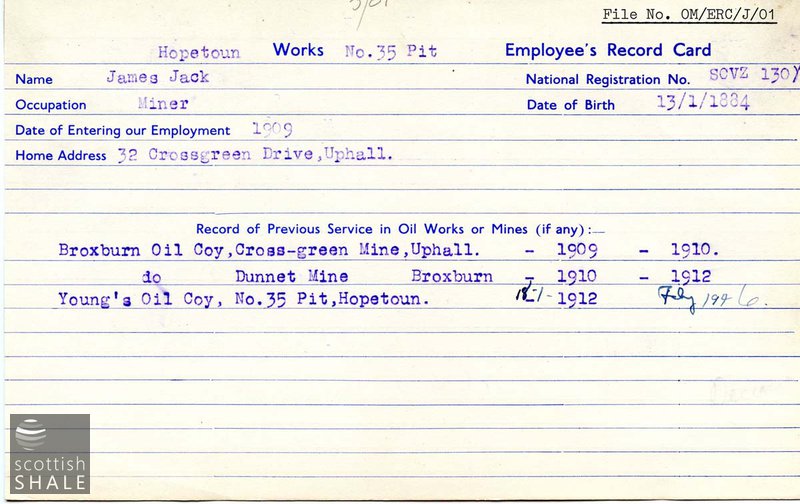 File No. OM/ERC/J/01
Hopetoun Works No.35 Pit Employee's Record Card
Name James Jack National Registration No. SCVZ 130
Occupation Miner Date of Birth 13/1/1884
Date of Entering our Employment 1909
Home Address 32 Crossgreen Drive,Uphall.
Record of Previous Service in Oil Works or Mines (if any):—
Broxburn Oil Coy,Cross-green Mine,Uphall. - 1909 - 1910.
do Dunnet Mine Broxburn - 1910 - 1912
Young's Oil Coy, No.35 Pit,Hopetoun. - 1912 Feby 1946.
scottish
SHALE